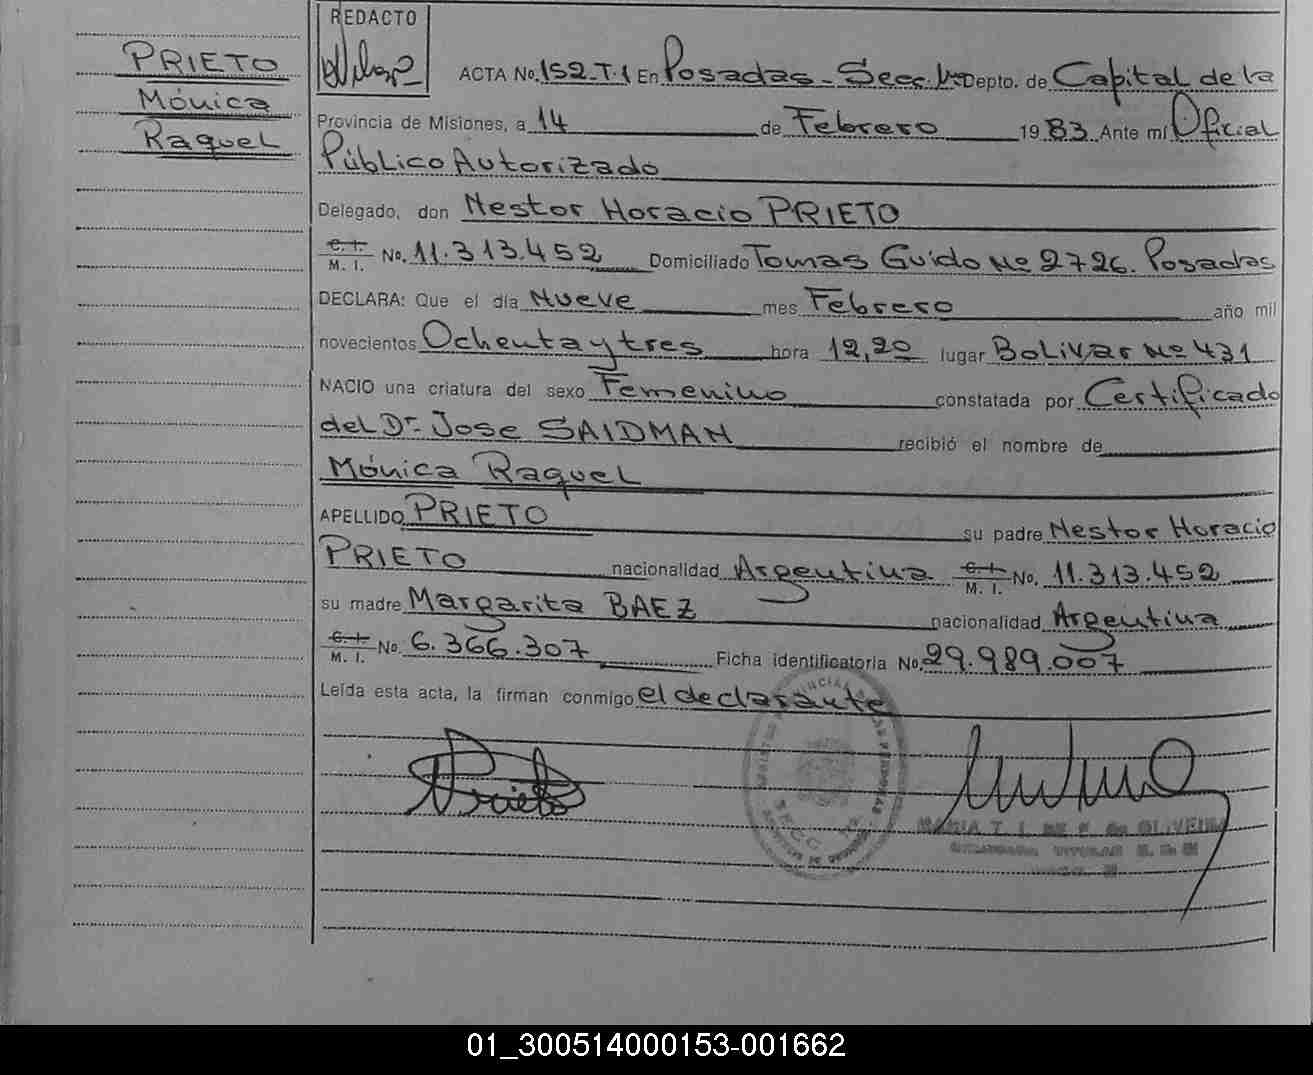 PRIETO
Mónica
Raquel
REDACTO
ACTA No. 152-T-1 En Posadas - Secc. 1ª Depto. de Capital de la
Provincia de Misiones, a 14 de Febrero 1983 Ante mí Oficial
Público Autorizado
Delegado, don Nestor Horacio PRIETO
C. I. / M. I. No. 11.313.452 Domiciliado Tomas Guido Nº 2726. Posadas
DECLARA: Que el día Nueve mes Febrero año mil
novecientos Ochenta y tres hora 12,20 lugar Bolivar Nº 431
NACIO una criatura del sexo Femenino constatada por Certificado
del Dr. Jose SAIDMAN recibió el nombre de
Mónica Raquel
APELLIDO PRIETO su padre Nestor Horacio
PRIETO nacionalidad Argentina C. I. / M. I. No. 11.313.452
su madre Margarita BAEZ nacionalidad Argentina
C. I. / M. I. No 6.366.307 Ficha identificatoria No. 29.989.007
Leída esta acta, la firman conmigo el declarante
Prieto
MARIA T. I. DE F. de OLIVEIRA
01_300514000153-001662